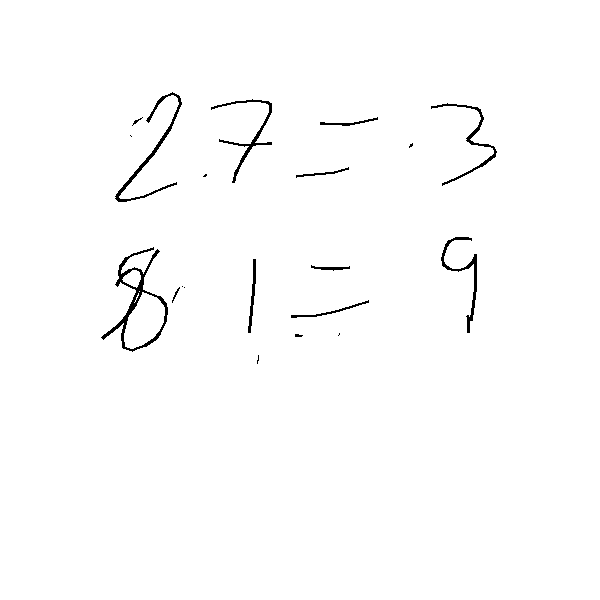 27 = 3
81 = 9